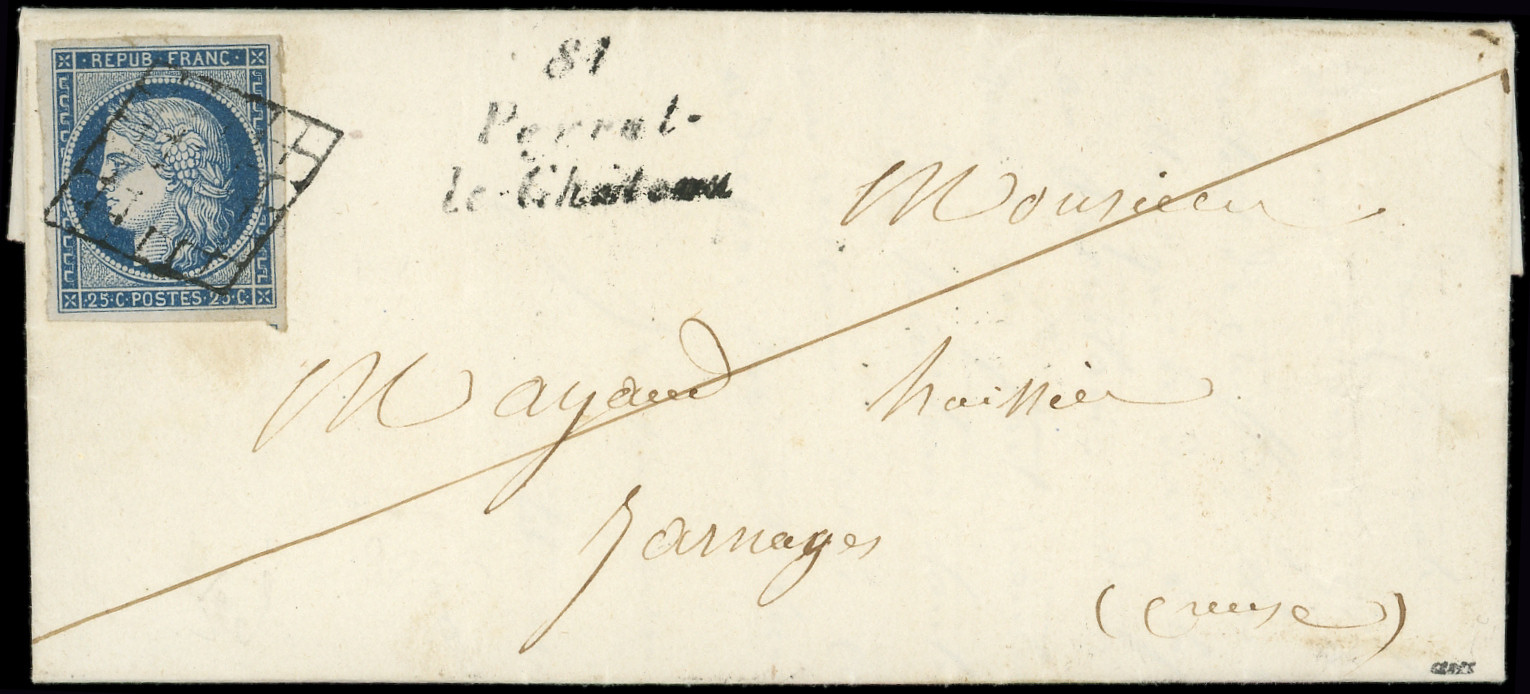 REPUB. FRANC.
25·C·POSTES·25·C·
81
Peyrat-
le-Château
Monsieur
Mayaud huissier
Jarnages
(Creuse)